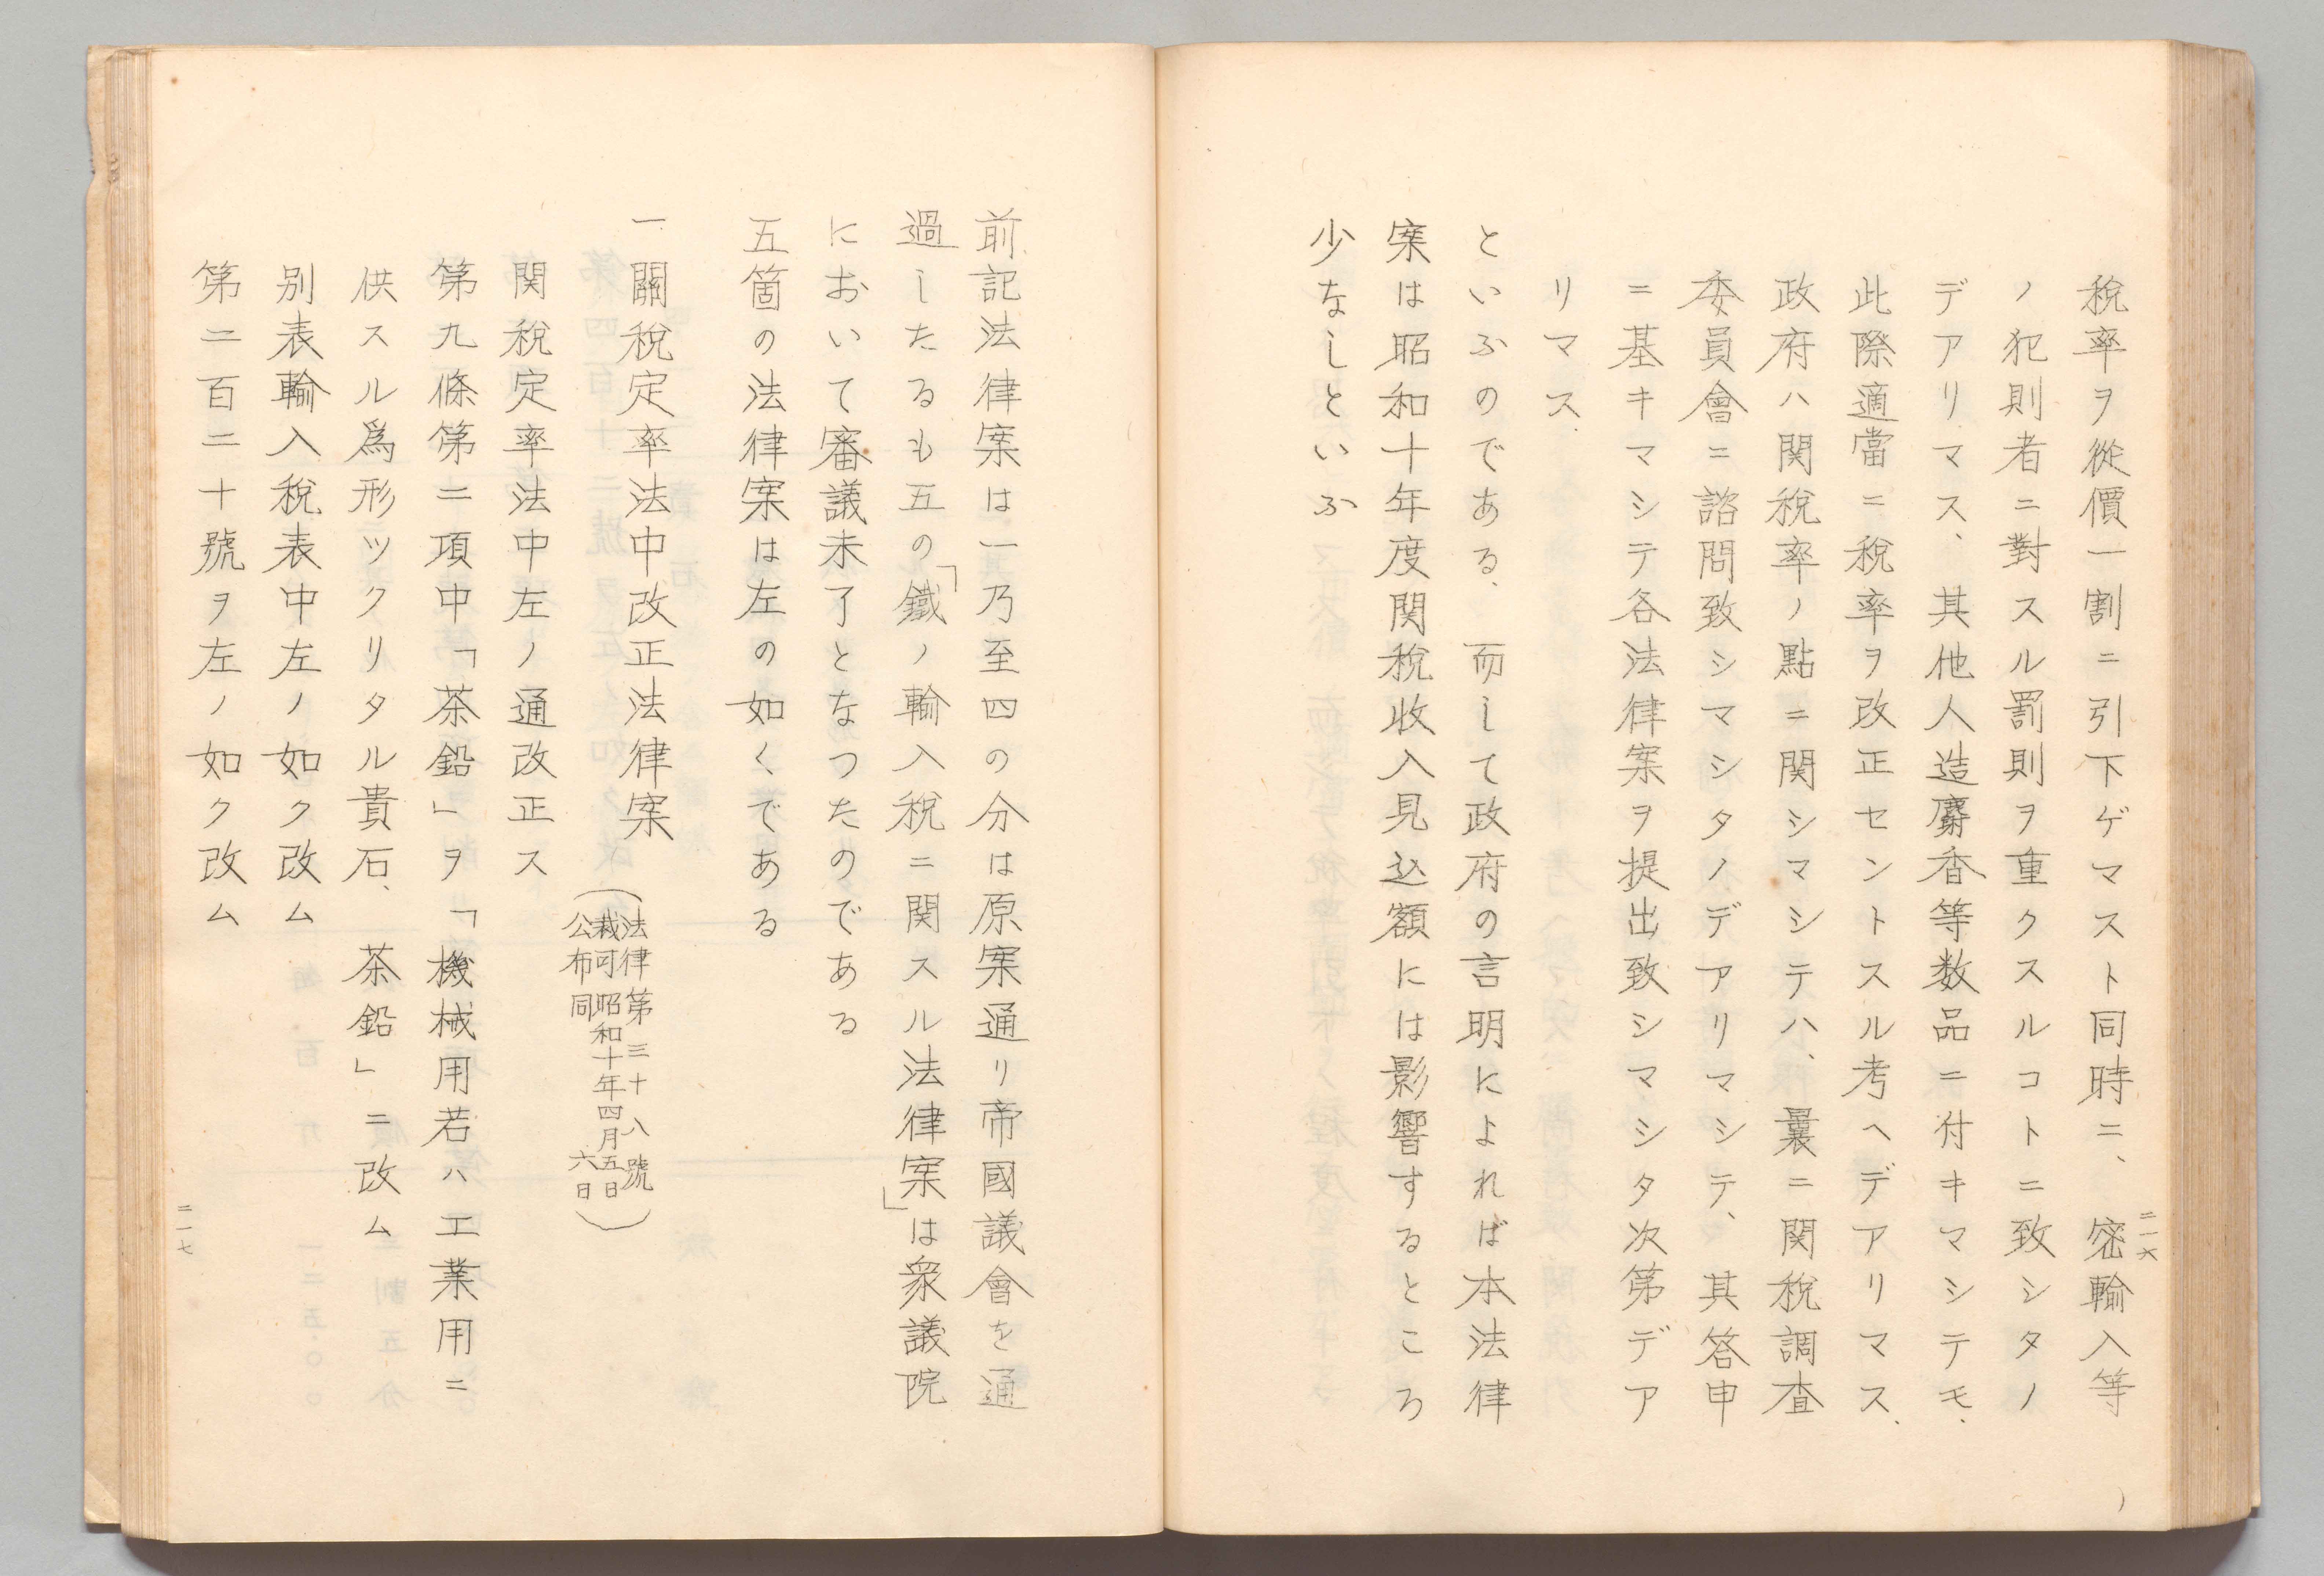 税率ヲ從價一割ニ引下ゲマスト同時ニ、密輸入等
ノ犯則者ニ對スル罰則ヲ重クスルコトニ致シタノ
デアリマス、其他人造麝香等数品ニ付キマシテモ、
此際適當ニ税率ヲ改正セントスル考ヘデアリマス、
政府ハ関税率ノ點ニ関シマシテハ、曩ニ関税調査
委員會ニ諮問致シマシタノデアリマシテ、其答申
ニ基キマシテ各法律案ヲ提出致シマシタ次第デア
リマス、
といふのである、而して政府の言明によれば本法律
案は昭和十年度関税收入見込額には影響するところ
少なしといふ
二一六
前記法律案は一乃至四の分は原案通り帝國議會を通
過したるも五の「鐵ノ輸入税ニ関スル法律案」は衆議院
において審議未了となつたのである
五箇の法律案は左の如くである
一、關税定率法中改正法律案
(法律第三十八號
裁可昭和十年四月五日
公布同六日)
関税定率法中左ノ通改正ス
第九條第二項中「茶鉛」ヲ「機械用若ハ工業用ニ
供スル爲形ツクリタル貴石、茶鉛」ニ改ム
別表輸入税表中左ノ如ク改ム
第二百二十號ヲ左ノ如ク改ム
二一七